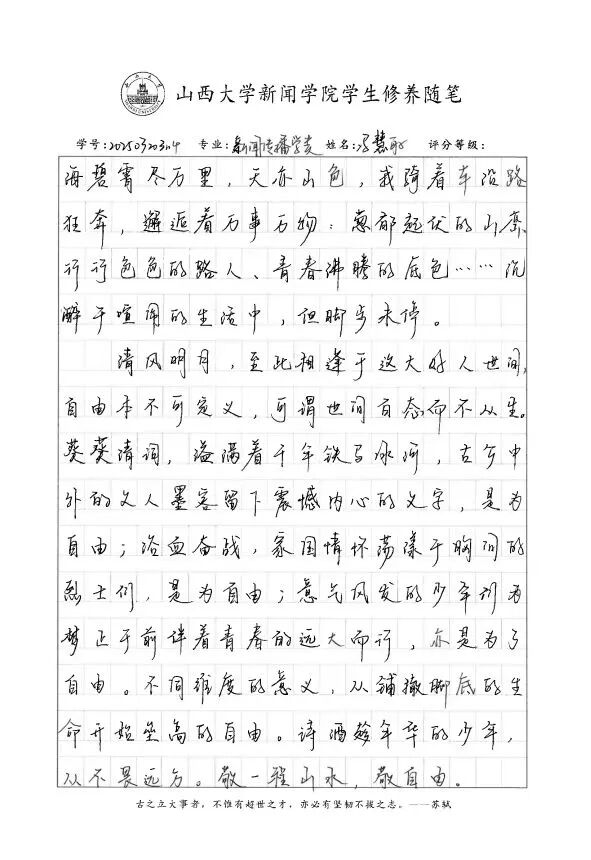 山西大学新闻学院学生修养随笔
学号: 专业:新闻传播学类 姓名:冯慧 评分等级:
海碧霄尽万里，天亦山色，我骑着车沿路
狂奔，邂逅着万事万物：葱郁起伏的山峦
行行色色的路人、青春沸腾的底色……沉
醉于喧闹的生活中，但脚步未停。
清风明月，至此相逢于这大好人世间，
自由本不可定义，可谓世间百态而不从生。
葵葵清词，溢隔着千年铁马冰河，古今中
外的文人墨客留下震撼内心的文字，是为
自由；浴血奋战，家国情怀荡漾于胸间的
烈士们，是为自由；意气风发的少年到为
梦正于前伴着青春的远大而行，亦是为了
自由。不同维度的意义，从铺撤脚底的生
命开始垒高的自由。诗酒趁年华的少年，
从不畏远方。敬一程山水，敬自由。
古之立大事者，不惟有超世之才，亦必有坚韧不拔之志。——苏轼